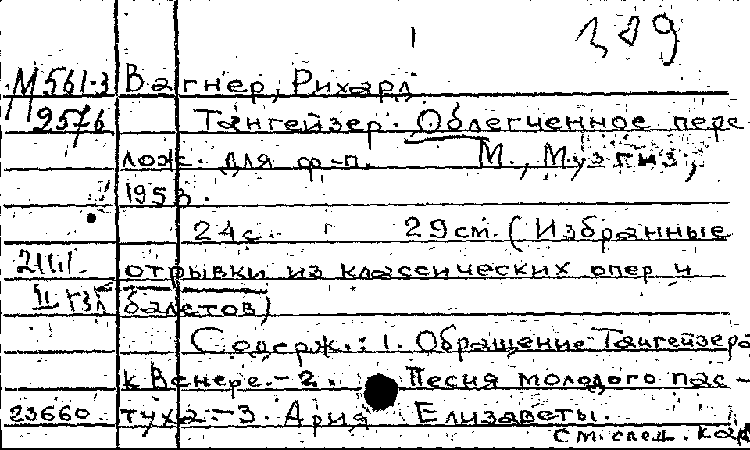 329
М561-3 Вагнер, Рихард
9576 Тангейзер. Облегченное пере-
лож. для ф-п. М., Музгиз,
1953.
24с. 29см. (Избранные
отрывки из классических опер и
балетов)
Содерж.: 1. Обращение Тангейзера
к Венере. - 2. Песня молодого пас-
23660 туха - 3. Ария Елизаветы.
См. след. кар